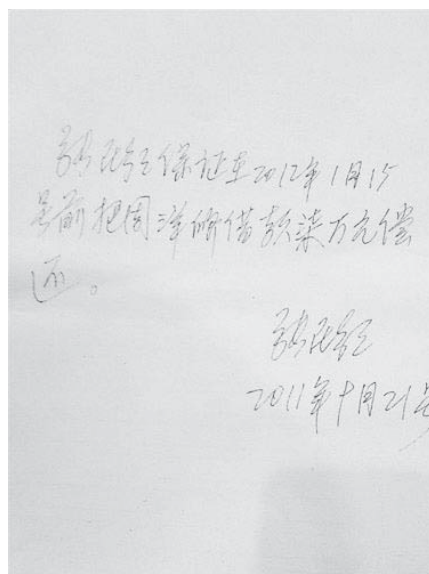 保证在2012年1月15
号前把周洋借款柒万元偿
还。
2011年十月21号